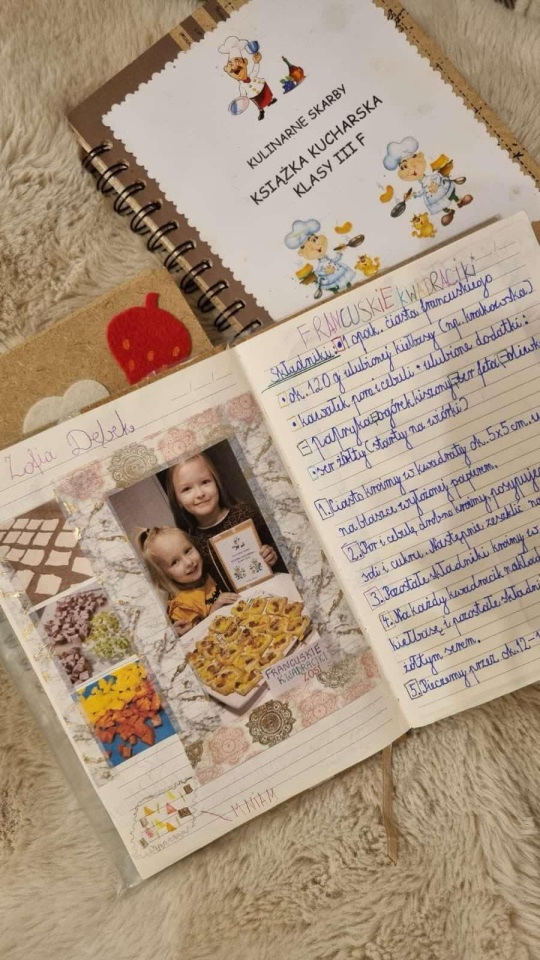 KULINARNE SKARBY
KSIĄŻKA KUCHARSKA
KLASY III F
Zofia Dębek
FRANCUSKIE
KWADRACIKI
ZOSI
MNIAM
FRANCUSKIE KWADRACIKI
Składniki: 1 opak. ciasta francuskiego
• ok. 120 g ulubionej kiełbasy (np. krakowska)
• kawałek pora i cebuli • ulubione dodatki:
papryka, ogórek kiszony, ser feta,
• ser żółty (starty na wiórki)
1. Ciasto kroimy w kwadraty ok. 5x5 cm.
na blaszce wyłożonej papierem.
2. Por i cebulę drobno kroimy, posypujemy
soli i cukru. Następnie zeszklić na
3. Pozostałe składniki kroimy w
4. Na każdy kwadracik nakład
kiełbasę i pozostałe składni
żółtym serem.
5. Pieczemy przez ok. 12-1